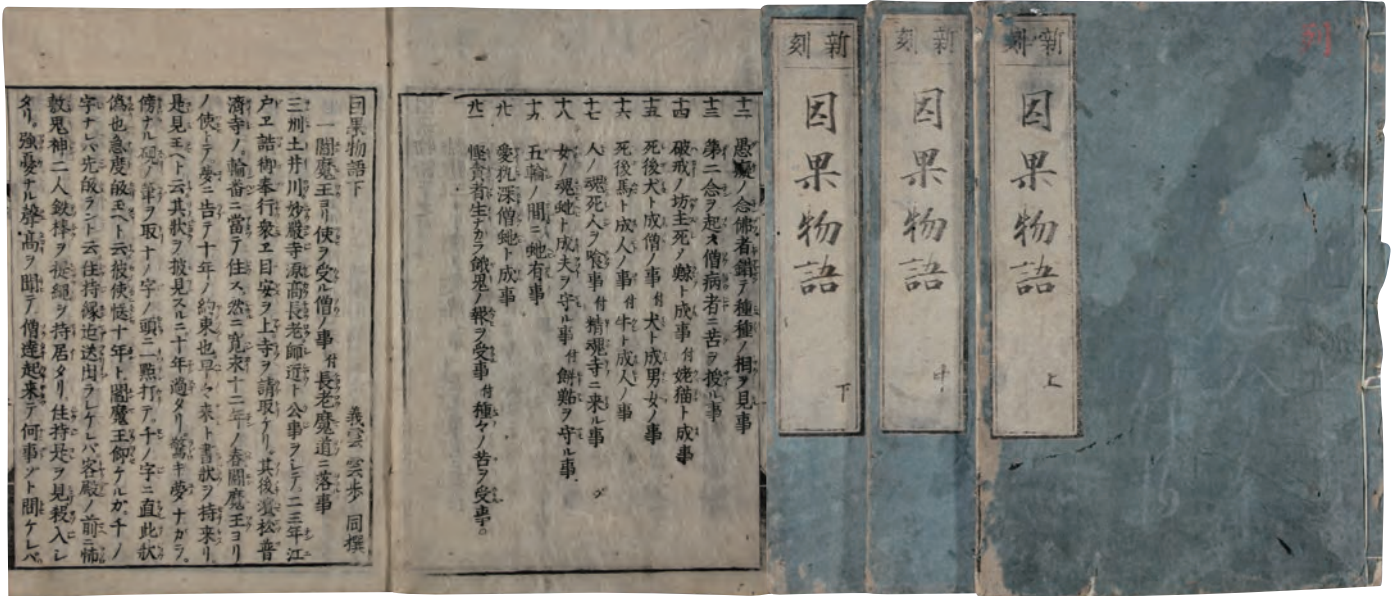 新刻
因果物語
上
新刻
因果物語
中
新刻
因果物語
下
十二 愚癡ノ念佛者錯テ種種ノ相ヲ見事
十三 第二念ヲ起ス僧病者ニ苦ヲ授ル事
十四 破戒ノ坊主死ノ鯨ト成事 付 姥猫ト成事
十五 死後犬ト成僧ノ事 付 犬ト成男女ノ事
十六 死後馬ト成人ノ事 付 牛ト成人ノ事
十七 人ノ魂死人ヲ喰事 付 精魂寺ニ来ル事
十八 女ノ魂蛇ト成夫ヲ守ル事 付 餅黏ヲ守ル事
十九 五輪ノ間ニ蛇有事
廿 愛執深僧蛇ト成事
廿一 慳貪者生ナカラ餓鬼ノ報ヲ受事 付 種々ノ苦ヲ受事。
因果物語下
義雲 雲歩 同撰
一 閻魔王ヨリ使ヲ受ル僧ノ事 付 長老魔道ニ落事
三刕土井川妙嚴寺源高長老師近ト公事ヲシテ二三年江
戸エ詰御奉行衆エ目安ヲ上寺ヲ請取ケリ。其後濱松普
濟寺ノ輪番ニ當テ住ス。然ニ寛永十二年ノ春閻魔王ヨリ
ノ使トテ夢ニ告テ十年ノ約束也早々来ト書状ヲ持来リ。
是見玉ヘト云其状ヲ披見スルニ十年過タリ。驚キ夢ナガラ。
傍ナル硯ノ筆ヲ取十ノ字ノ頭ニ一點打テ千ノ字ニ直此状
偽也急度皈玉ヘト云彼使慥十年ト閻魔王仰ケルガ。千ノ
字ナレバ先皈ラント云住持縁迄送出ラレケレバ客殿ノ前ニ怖
敷鬼神二人鉄棒ヲ提縄ヲ持居タリ。住持是ヲ見殺入レ
タリ。強憂ナル聲高ヲ聞テ僧達起来テ何事ゾト問ケレバ